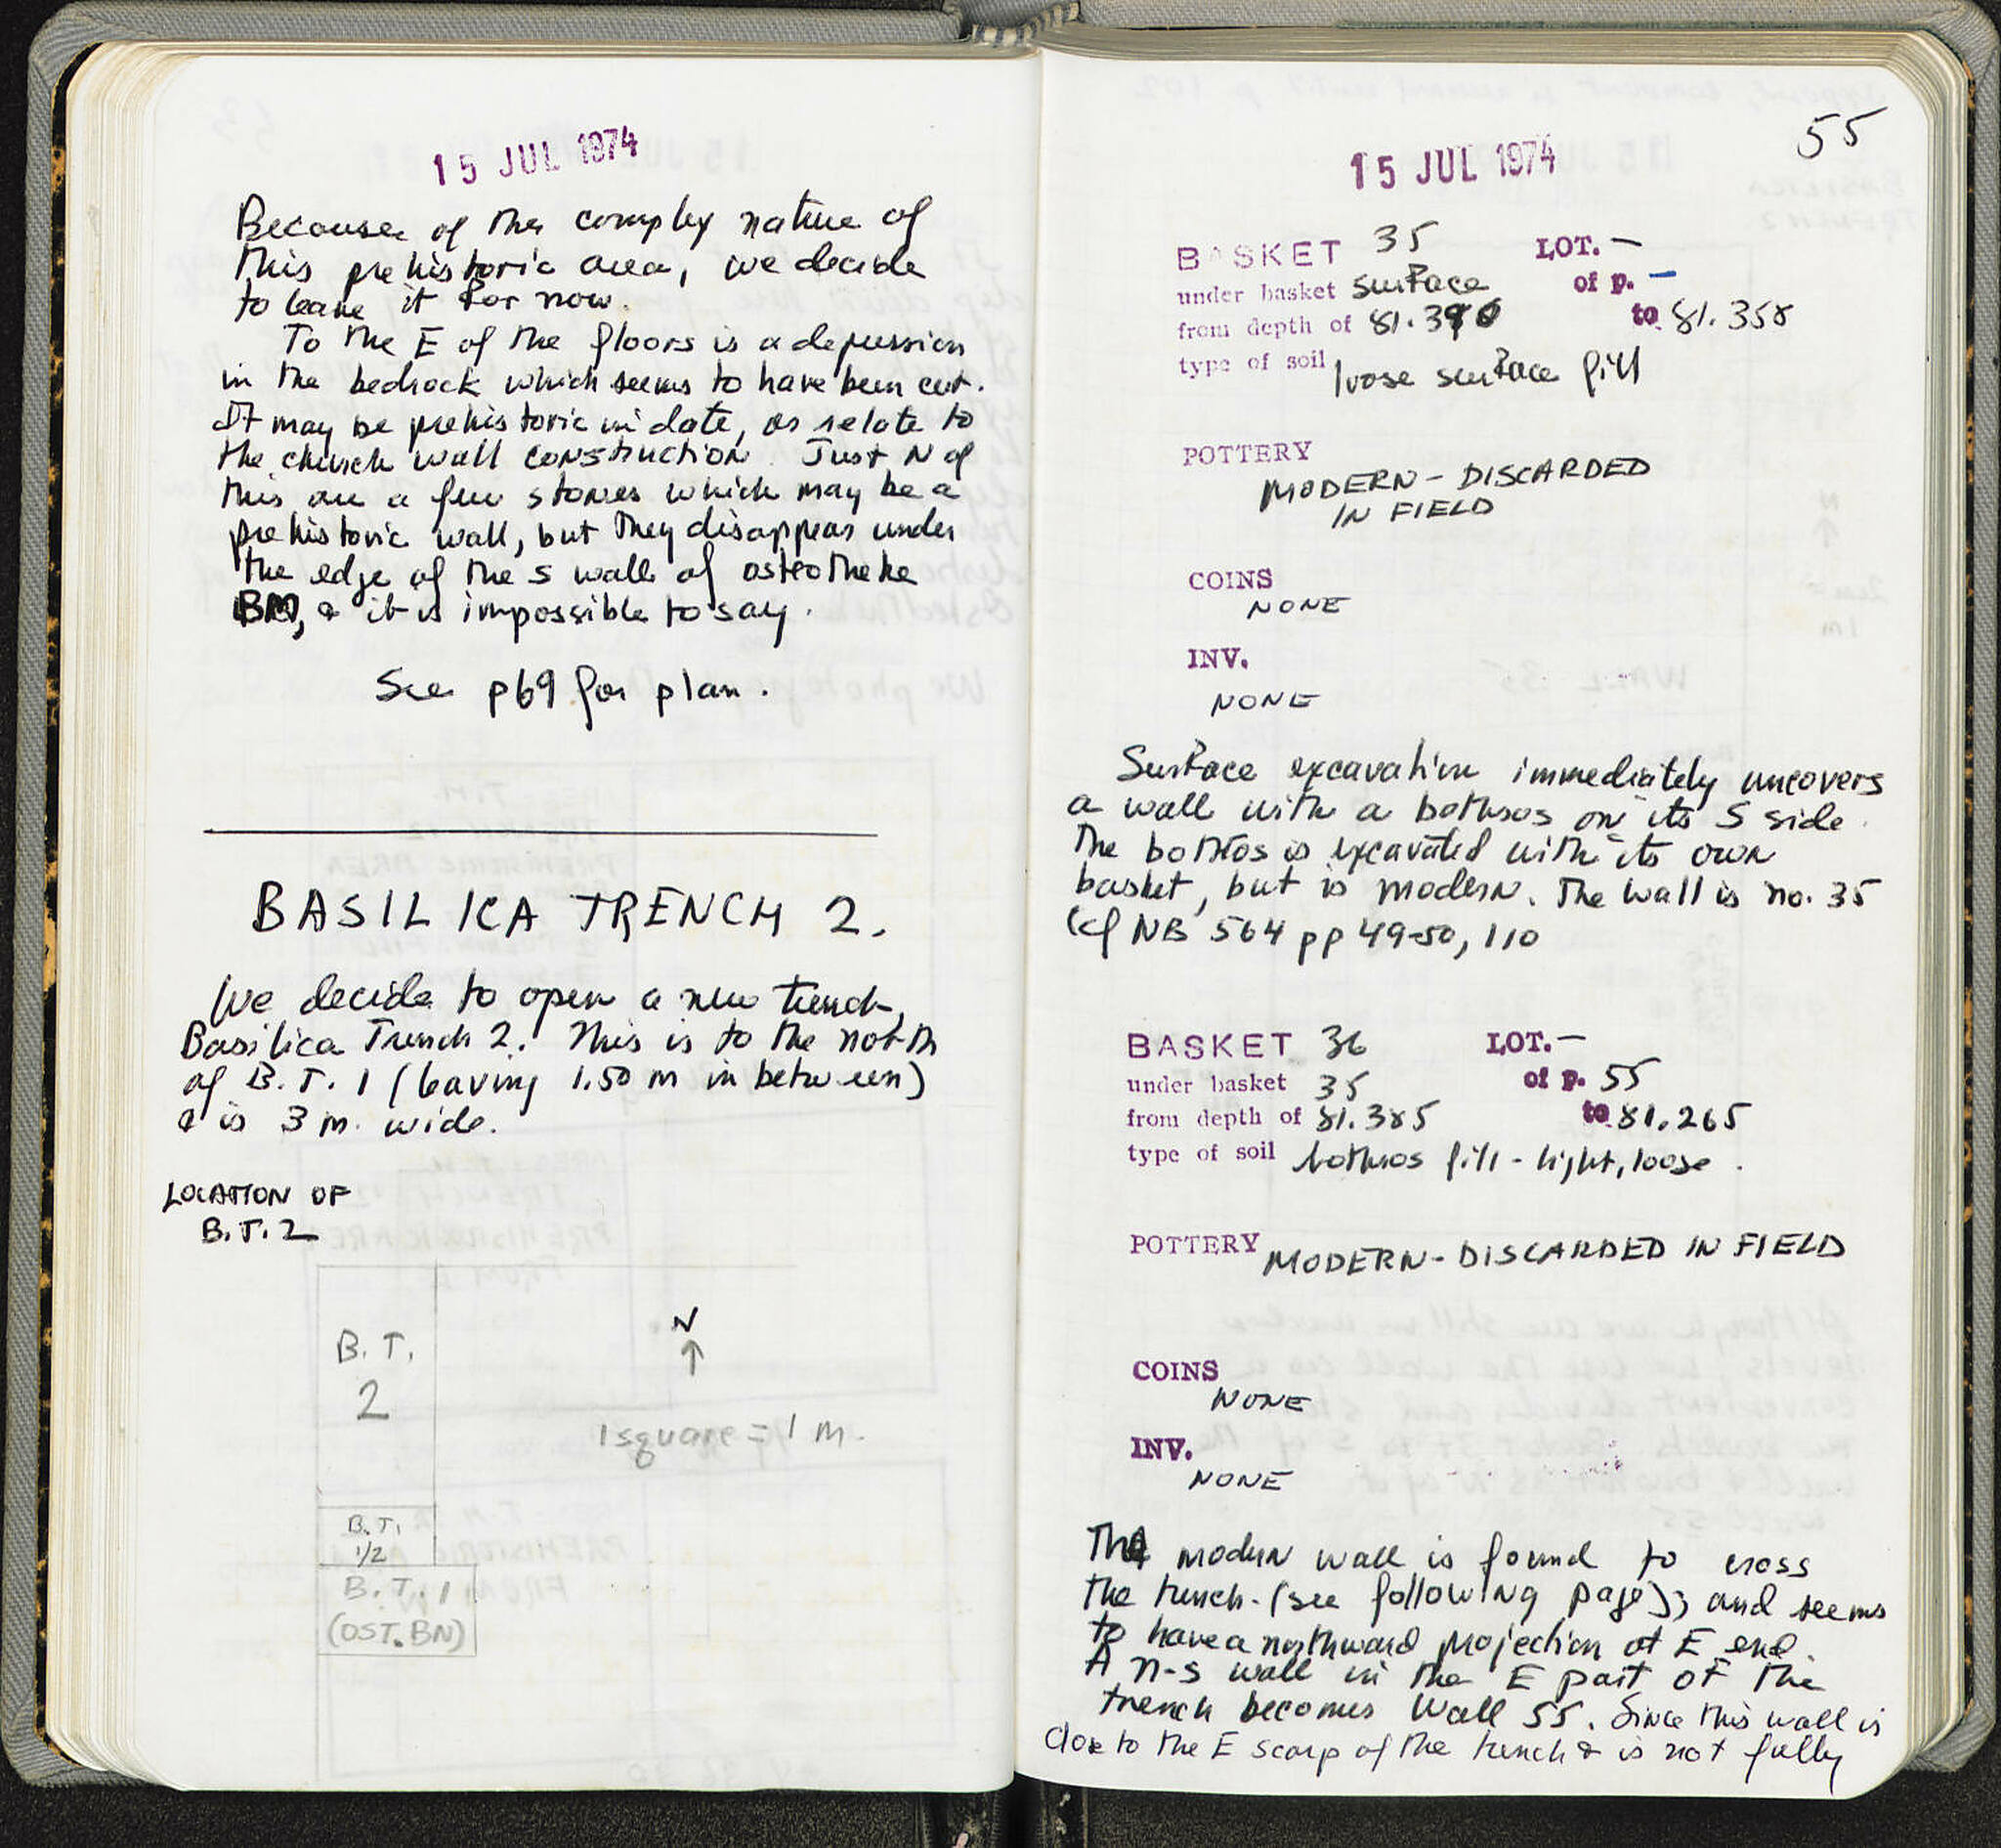 15 JUL 1974
Because of the complex nature of
this prehistoric area, we decide
to leave it for now.
To the E of the floors is a depression
in the bedrock which seems to have been cut.
It may be prehistoric in date, or relate to
the church wall construction. Just N of
this are a few stones which may be a
prehistoric wall, but they disappear under
the edge of the S wall of osteotheke
BM, & it is impossible to say.
See p69 for plan.
BASILICA TRENCH 2.
We decide to open a new trench,
Basilica Trench 2. This is to the north
of B.T. 1 (leaving 1.50 m in between)
& is 3 m. wide.
LOCATION OF
B.T. 2
B. T.
2
N
1 square = 1 m.
B.T.
1/2
B. T. 1
(OST. BN)
55
15 JUL 1974
BASKET 35 LOT. —
under basket surface of p. —
from depth of 81.390 to 81.358
type of soil loose surface fill
POTTERY
MODERN - DISCARDED
IN FIELD
COINS
NONE
INV.
NONE
Surface excavation immediately uncovers
a wall with a bothros on its S side.
The bothros is excavated with its own
basket, but is modern. The wall is no. 35
(cf NB 564 pp 49-50, 110
BASKET 36 LOT. —
under basket 35 of p. 55
from depth of 81.385 to 81.265
type of soil bothros fill - light, loose.
POTTERY MODERN - DISCARDED IN FIELD
COINS
NONE
INV.
NONE
The modern wall is found to cross
the trench. (see following page); and seems
to have a northward projection at E end.
A n-s wall in the E part of the
trench becomes Wall 55. Since this wall is
close to the E scarp of the trench & is not fully